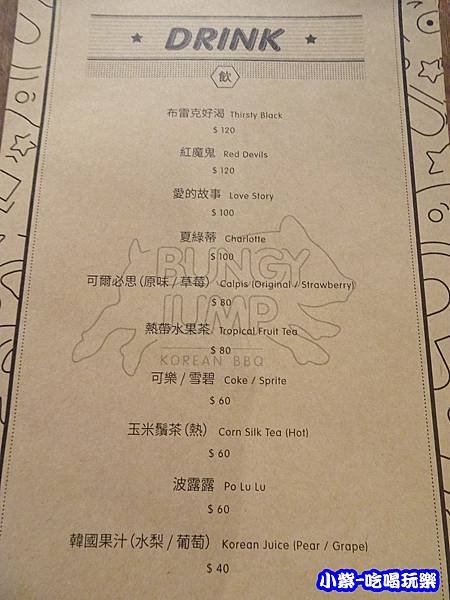 ★ DRINK ★
飲
布雷克好渴 Thirsty Black
$ 120
紅魔鬼 Red Devils
$ 120
愛的故事 Love Story
$ 100
夏綠蒂 Charlotte
$ 100
BUNGY
可爾必思(原味/草莓) Calpis (Original / Strawberry)
$ 80
JUMP
熱帶水果茶 Tropical Fruit Tea
$ 80
KOREAN BBQ
可樂/雪碧 Coke / Sprite
$ 60
玉米鬚茶(熱) Corn Silk Tea (Hot)
$ 60
波露露 Po Lu Lu
$ 60
韓國果汁(水梨/葡萄) Korean Juice (Pear / Grape)
$ 40
小紫-吃喝玩樂